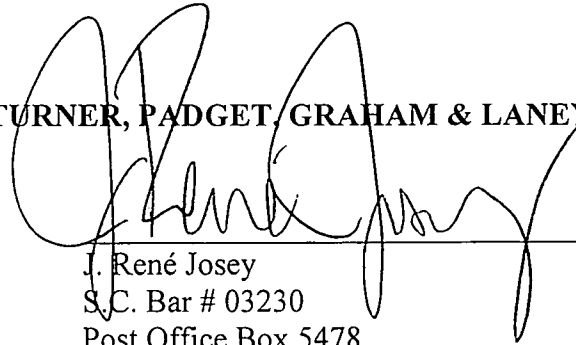 TURNER, PADGET, GRAHAM & LANEY
J René Josey
J. René Josey
S.C. Bar # 03230
Post Office Box 5478